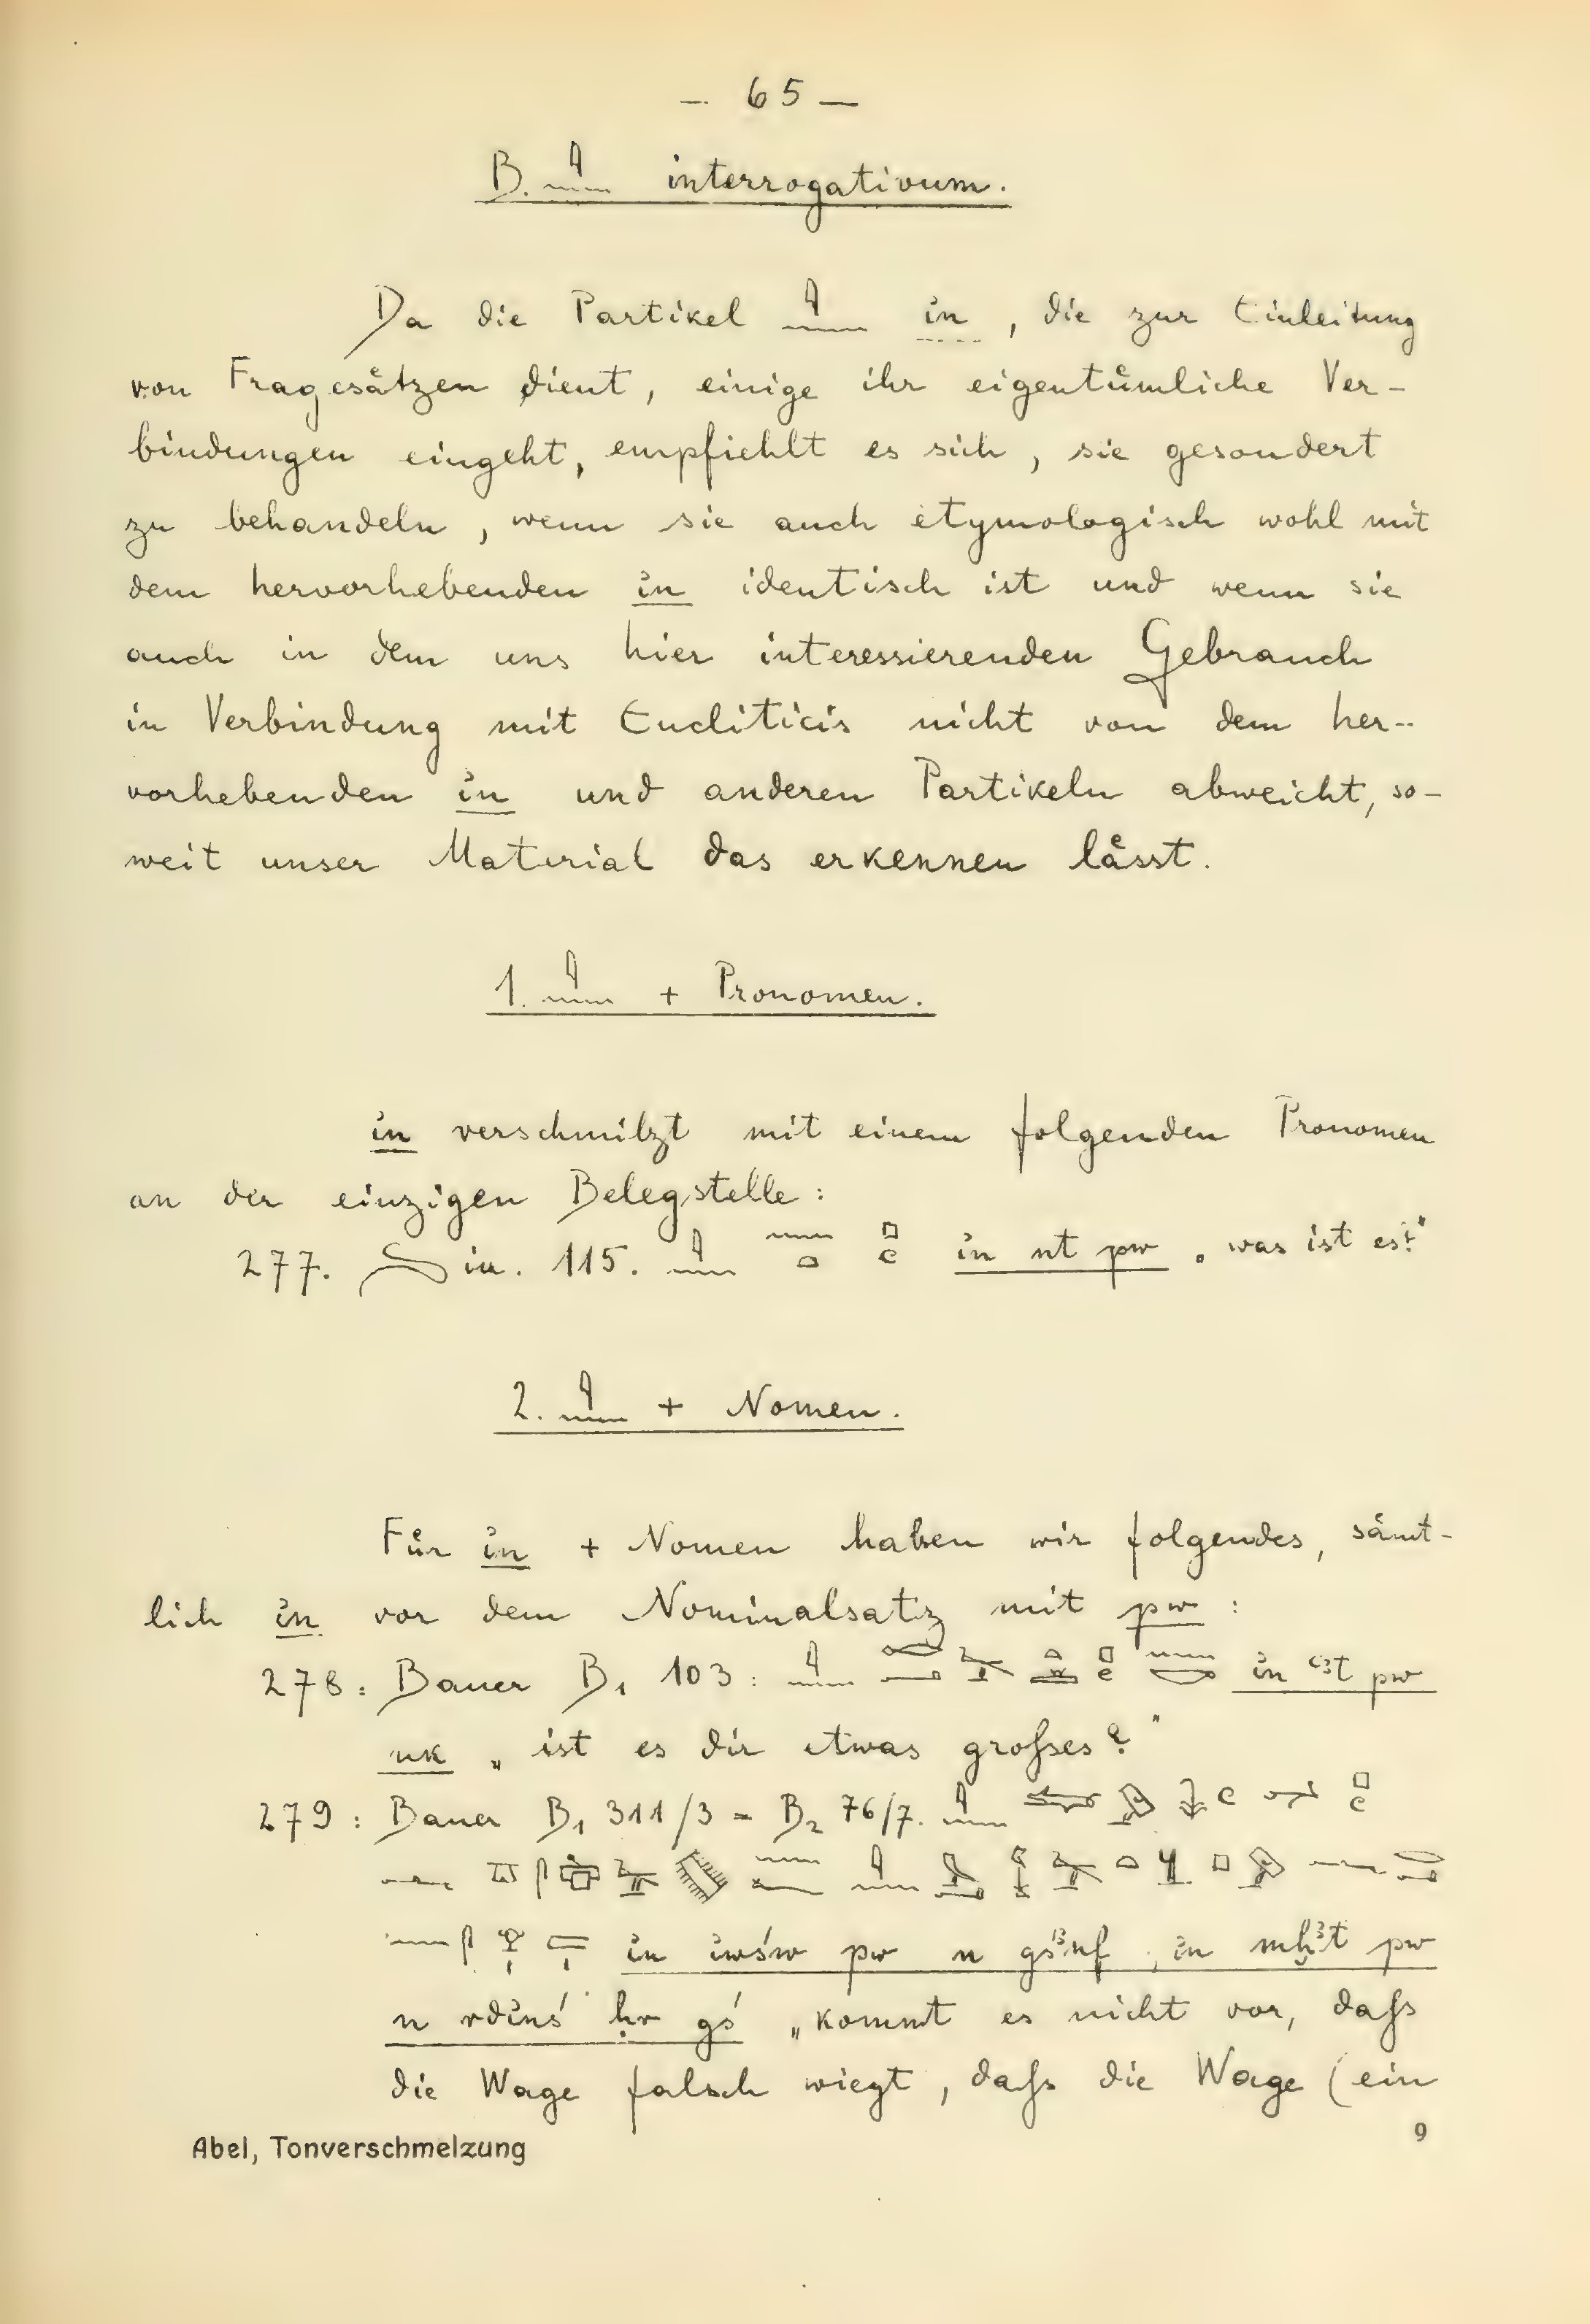 – 65 –
B. 𓇋𓈖 interrogativum.
Da die Partikel 𓇋𓈖 i҆n, die zur Einleitung
von Fragesätzen dient, einige ihr eigentümliche Ver-
bindungen eingeht, empfiehlt es sich, sie gesondert
zu behandeln, wenn sie auch etymologisch wohl mit
dem hervorhebenden i҆n identisch ist und wenn sie
auch in dem uns hier interessierenden Gebrauch
in Verbindung mit Encliticis nicht von dem her-
vorhebenden i҆n und anderen Partikeln abweicht, so-
weit unser Material das erkennen lässt.
1. 𓇋𓈖 + Pronomen.
i҆n verschmilzt mit einem folgenden Pronomen
an der einzigen Belegstelle:
277. Sin. 115. 𓇋𓈖 𓈖𓏏 𓊪𓏲 i҆n nt pw „was ist es?"
2. 𓇋𓈖 + Nomen.
Für i҆n + Nomen haben wir folgendes, sämt-
lich i҆n vor dem Nominalsatz mit pw:
278: Bauer B₁ 103: 𓇋𓈖 i҆n ꜥꜣt pw
nk „ist es dir etwas großes?"
279: Bauer B₁ 311/3 = B₂ 76/7. 𓇋𓈖 𓊪𓏲
i҆n i҆wśw pw n gśꜣnf, i҆n mḫꜣt pw
n rdi҆nś ḥr gś „kommt es nicht vor, daß
die Wage falsch wiegt, daß die Wage (ein
Abel, Tonverschmelzung 9